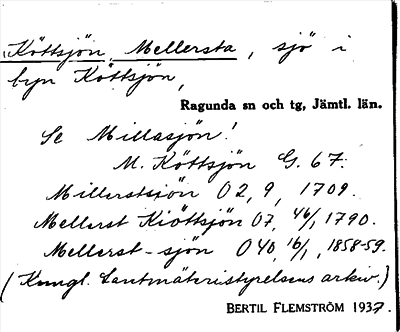 Köttsjön, Mellersta, sjö i
byn Köttsjön,
Ragunda sn och tg, Jämtl. län.
Se Millasjön!
M. Köttsjön G. 67.
Millerstsiön O 2, 9, 1709.
Mellerst Kiöttsjön O 7, 46/, 1790.
Mellerst-sjön O 40, 16/1, 1858-59.
(Kungl. Lantmäteristyrelsens arkiv.)
BERTIL FLEMSTRÖM 1937.